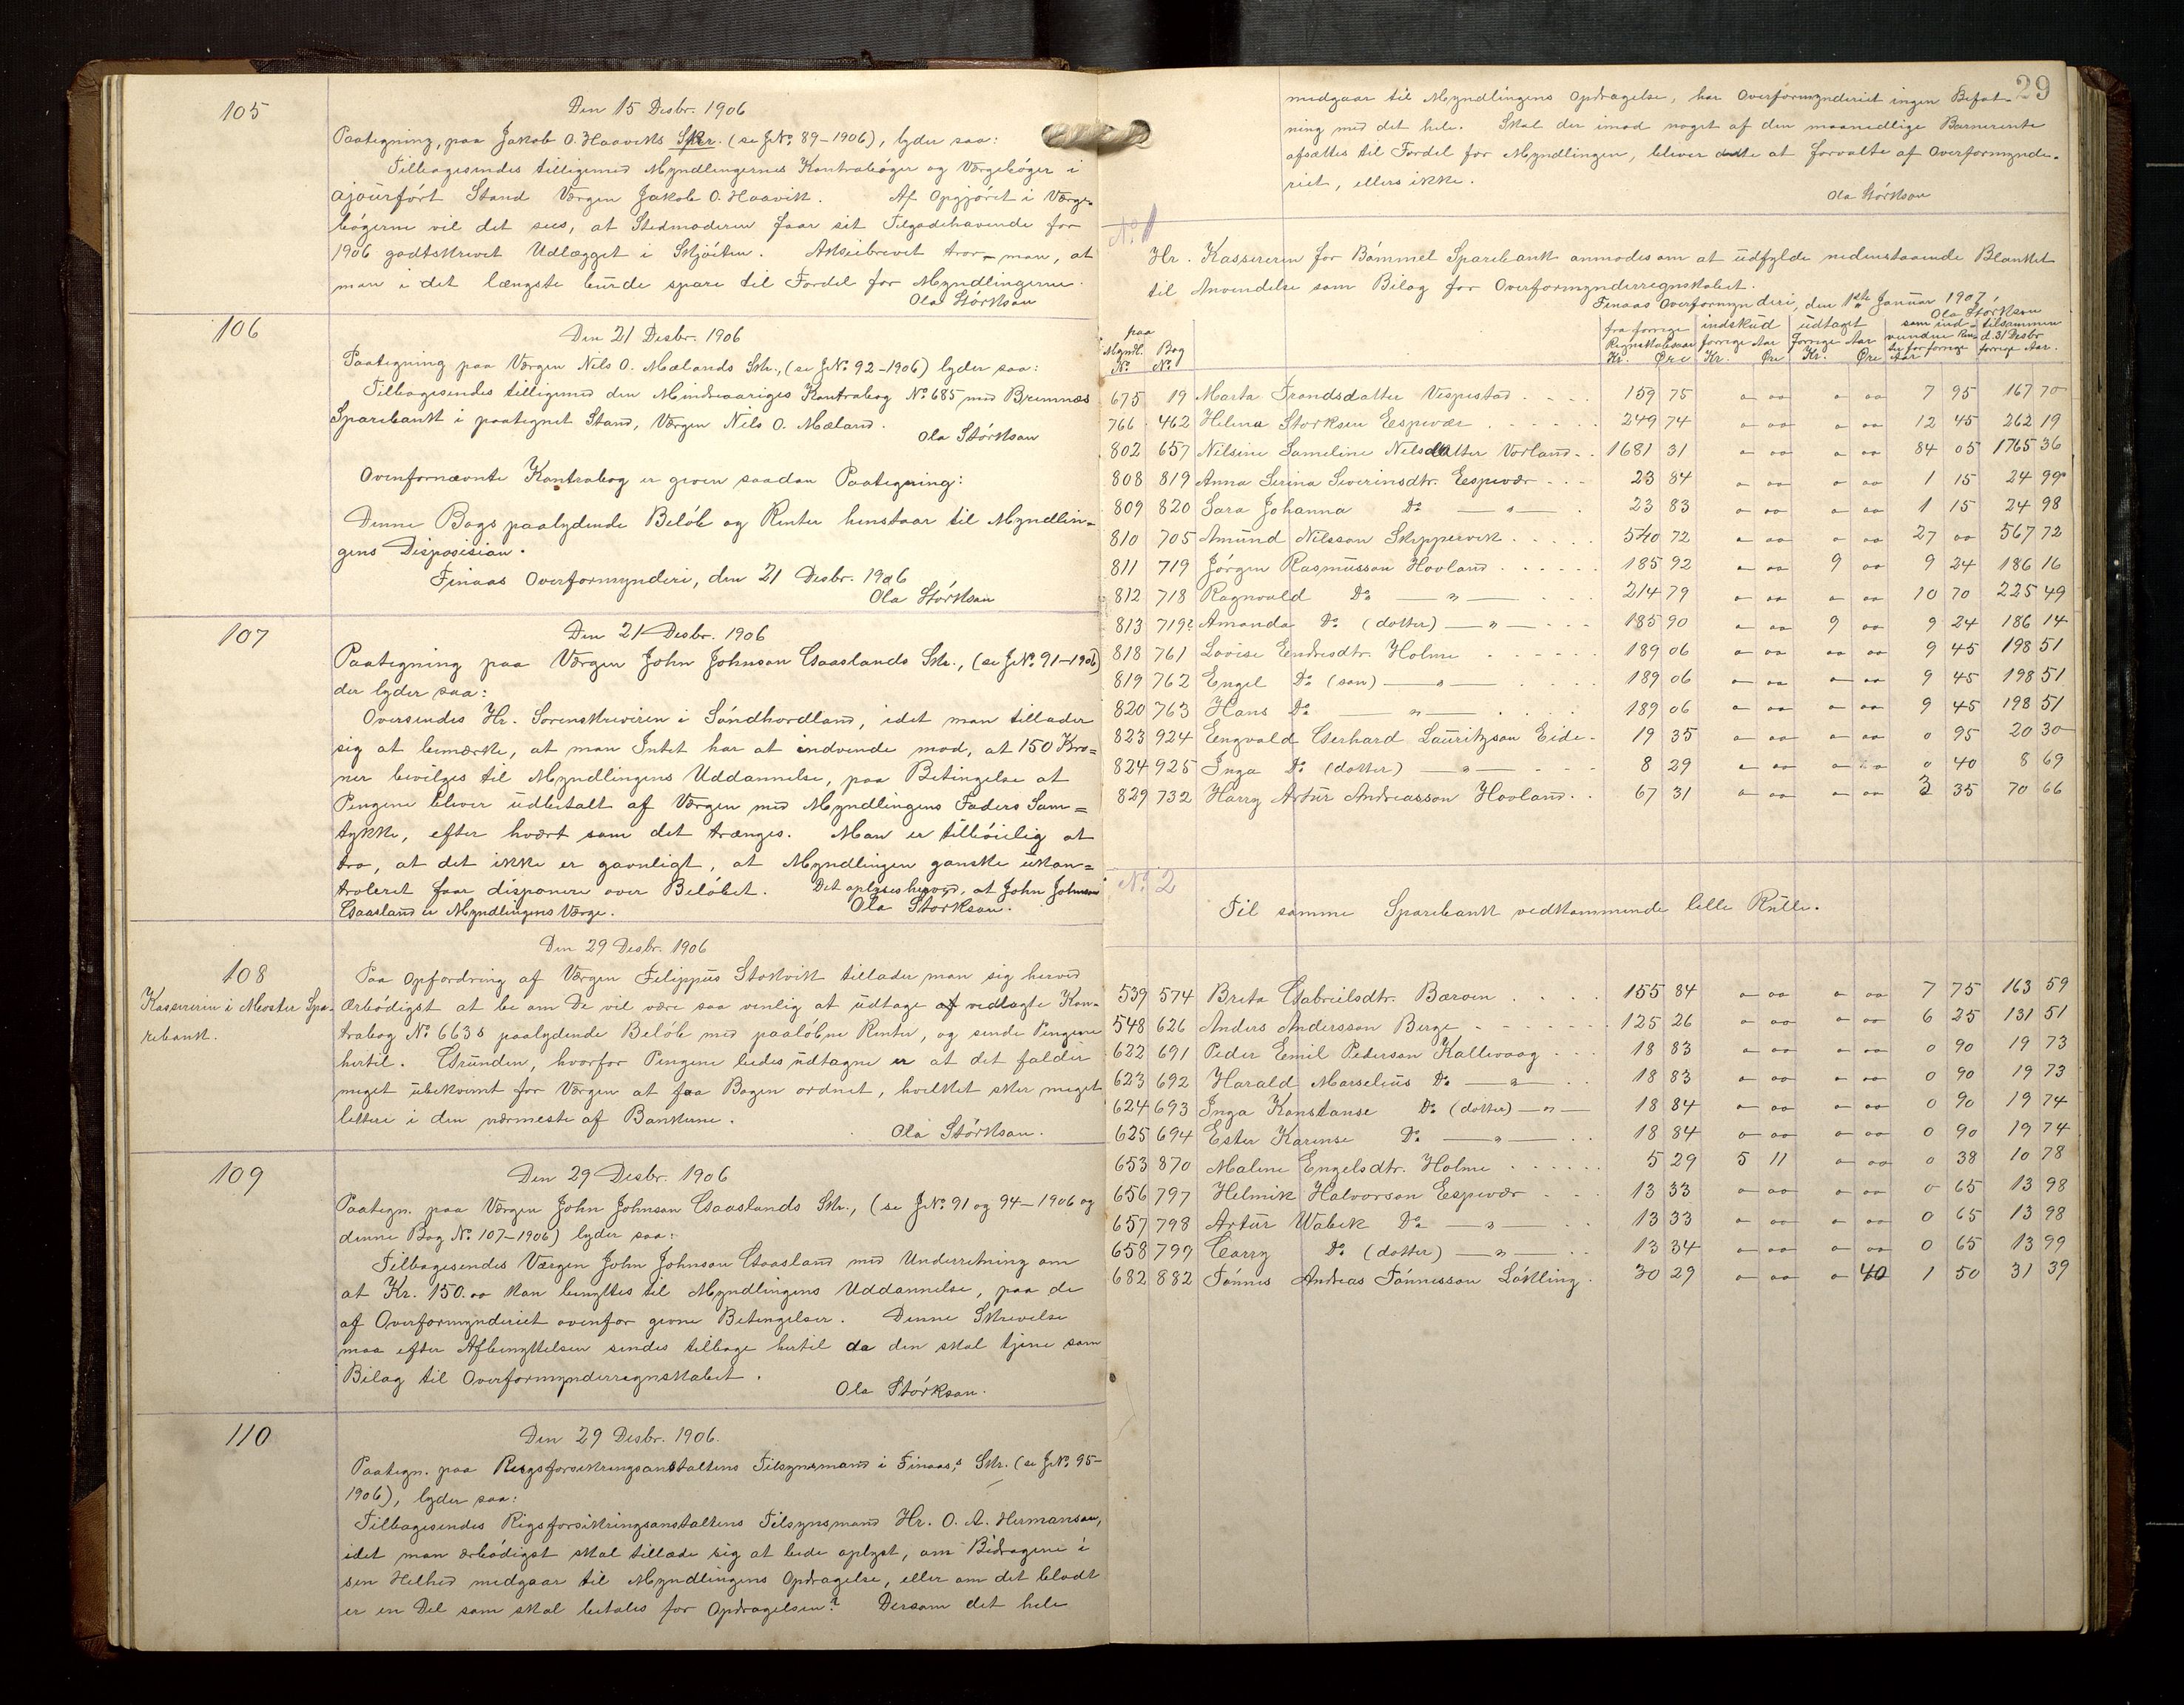 105
Den 15 Desbr. 1906
Paategning, paa Jakob O. Haaviks Skr. (se JNo. 89-1906), lyder saa:
Tilbagesendes tilligemed Myndlingernes Kontrabøger og Værgebøger i
ajourført Stand Værgen Jakob O. Haavik. Af Opgjøret i Værge-
bøgerne vil det sees, at Stedmoderen faar sit Tilgodehavende for
1906 godtskrevet Udlægget i Skjøiten. Aksiebrevet tror man, at
man i det længste burde spare til Fordel for Myndlingerne.
Ola Størkson
106
Den 21 Desbr. 1906
Paategning paa Værgen Nils O. Mælands Skr., (se JNo. 92-1906) lyder saa:
Tilbagesendes tilligemed den Mindreaariges Kontrabog No. 685 med Bremnes
Sparebank i paategnet Stand, Værgen Nils O. Mæland.
Ola Størkson
Ovenfornævnte Kontrabog er given saadan Paategning:
Denne Bogs paalydende Beløb og Renter henstaar til Myndlin-
gens Disposision.
Finaas Overformynderi, den 21 Desbr. 1906
Ola Størkson
107
Den 21 Desbr. 1906
Paategning paa Værgen John Johnson Gaaslands Skr., (se JNo. 91-1906)
der lyder saa:
Oversendes Hr. Sorenskriveren i Søndhordland, idet man tillader
sig at bemærke, at man Intet har at indvende mod, at 150 Kro-
ner bevilges til Myndlingens Uddannelse, paa Betingelse at
Pengene bliver udbetalt af Værgen med Myndlingens Faders Sam-
tykke, efter hvært som det trænges. Man er tilbøielig at
tro, at det ikke er gavnligt, at Myndlingen ganske ukon-
troleret faar disponere over Beløbet. Det oplyses herved, at John Johnson
Gaasland er Myndlingens Værge. Ola Størkson.
108
Kassereren i Moster Spa-
rebank.
Den 29 Desbr. 1906
Paa Opfordring af Værgen Filippus Stokvik tillader man sig herved
ærbødigst at be om De vil være saa venlig at udtage af vedlagte Kon-
trabog No. 6638 paalydende Beløb med paaløbne Renter, og sende Pengene
hertil. Grunden, hvorfor Pengene bedes udtagne er at det falder
meget ubekvemt for Værgen at faa Bogen ordnet, hvilket sker meget
lettere i den nærmeste af Bankerne.
Ola Størkson.
109
Den 29 Desbr. 1906
Paategn. paa Værgen John Johnson Gaaslands Skr., (se JNo. 91 og 94-1906 og
denne Bog No. 107-1906) lyder saa:
Tilbagesendes Værgen John Johnson Gaasland med Underretning om
at Kr. 150.00 kan benyttes til Myndlingens Uddannelse, paa de
af Overformynderiet ovenfor givne Betingelser. Denne Skrivelse
maa efter Afbenyttelsen sendes tilbage hertil da den skal tjene som
Bilag til Overformynderregnskabet.
Ola Størkson.
110
Den 29 Desbr. 1906.
Paategn. paa Rigsforsikringsanstaltens Tilsynsmand i Finaas,s Skr. (se JNo. 95-
1906), lyder saa:
Tilbagesendes Rigsforsikringsanstaltens Tilsynsmand Hr. O. A. Hermanson,
idet man ærbødigst skal tillade sig at bede oplyst, om Bidragene i
sin Helhed medgaar til Myndlingens Opdragelse, eller om det blodt
er en Del som skal betales for Opdragelsen? Dersom det hele
29
medgaar til Myndlingens Opdragelse, har Overformynderiet ingen Befat-
ning med det hele. Skal der imod noget af den maanedlige Barnerente
afsættes til Fordel for Myndlingen, bliver dette at forvalte af Overformynde-
riet, ellers ikke.
Ola Størkson
No. 1
Hr. Kassereren for Bømmel Sparebank anmodes om at udfylde nedenstaaende Blanket
til Anvendelse som Bilag for Overformynderregnskabet.
Finaas Overformynderi, den 1ste Januar 1907,
Ola Størkson
paa Myndl. No. Bog No. fra forrige Regnskabsaar Kr. Øre indskud forrige Aar Kr. Øre udtaget forrige Aar Kr. Øre som indvundne Renter for forrige Aar tilsammen d. 31 Desbr forrige Aar.
675 19 Marta Trondsdatter Vespestad 159 75 0 00 0 00 7 95 167 70
766 462 Helena Storksen Espevær 249 74 0 00 0 00 12 45 262 19
802 657 Nilsine Sameline Nilsdatter Vorland 1681 31 0 00 0 00 84 05 1765 36
808 819 Anna Serina Severinsdtr. Espevær 23 84 0 00 0 00 1 15 24 99
809 820 Sara Johanna Do. — " — 23 83 0 00 0 00 1 15 24 98
810 705 Amund Nilsson Skippervik 540 72 0 00 0 00 27 00 567 72
811 719 Jørgen Rasmusson Hovland 185 92 0 00 9 00 9 24 186 16
812 718 Ragnvald Do. — " — 214 79 0 00 0 00 10 70 225 49
813 719½ Amanda Do. (dotter) — " — 185 90 0 00 9 00 9 24 186 14
818 761 Lovise Endresdtr. Holme 189 06 0 00 00 00 9 45 198 51
819 762 Engel Do. (son) — " — 189 06 0 00 0 00 9 45 198 51
820 763 Hans Do. — " — 189 06 0 00 0 00 9 45 198 51
823 924 Engvald Gerhard Lauritzson Eide 19 35 0 00 0 00 0 95 20 30
824 925 Inga Do. (dotter) — " — 8 29 0 00 0 00 0 40 8 69
829 732 Harry Artur Andreasson Hovland 67 31 0 00 0 00 3 35 70 66
No. 2
Til samme Sparebank vedkommende lille Rulle.
539 574 Brita Gabrielsdtr. Bærøen 155 84 0 00 0 00 7 75 163 59
548 626 Anders Andersson Berge 125 26 0 00 0 00 6 25 131 51
622 691 Peder Emil Pederson Kallevaag 18 83 0 00 0 00 0 90 19 73
623 692 Harald Marselius Do. — " — 18 83 0 00 0 00 0 90 19 73
624 693 Inga Konstanse Do. (dotter) — " — 18 84 0 00 0 00 0 90 19 74
625 694 Ester Karense Do. — " — 18 84 0 00 0 00 0 90 19 74
653 870 Maline Engelsdtr. Holme 5 29 5 11 0 00 0 38 10 78
656 797 Helmik Halvorson Espevær 13 33 0 00 0 00 0 65 13 98
657 798 Artur Wabek Do. — " — 13 33 0 00 0 00 0 65 13 98
658 799 Do. (dotter) — " — 13 34 0 00 0 00 0 65 13 99
682 882 Tønnes Andreas Tønnesson Løkling 30 29 0 00 0 40 1 50 31 39